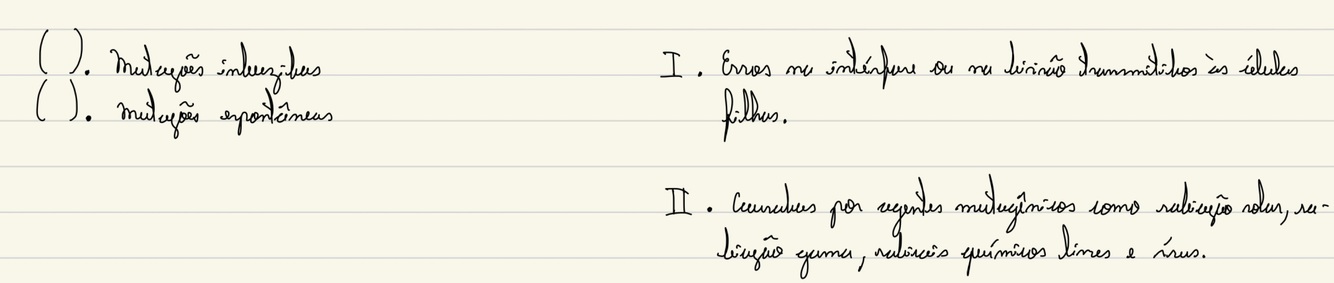 ( ). Mutações induzidas
( ). Mutações espontâneas
I. Erros na intérfase ou na divisão transmitidos às células
filhas.
II. Causadas por agentes mutagênicos como radiação solar, ra-
diação gama, radicais químicos livres e vírus.